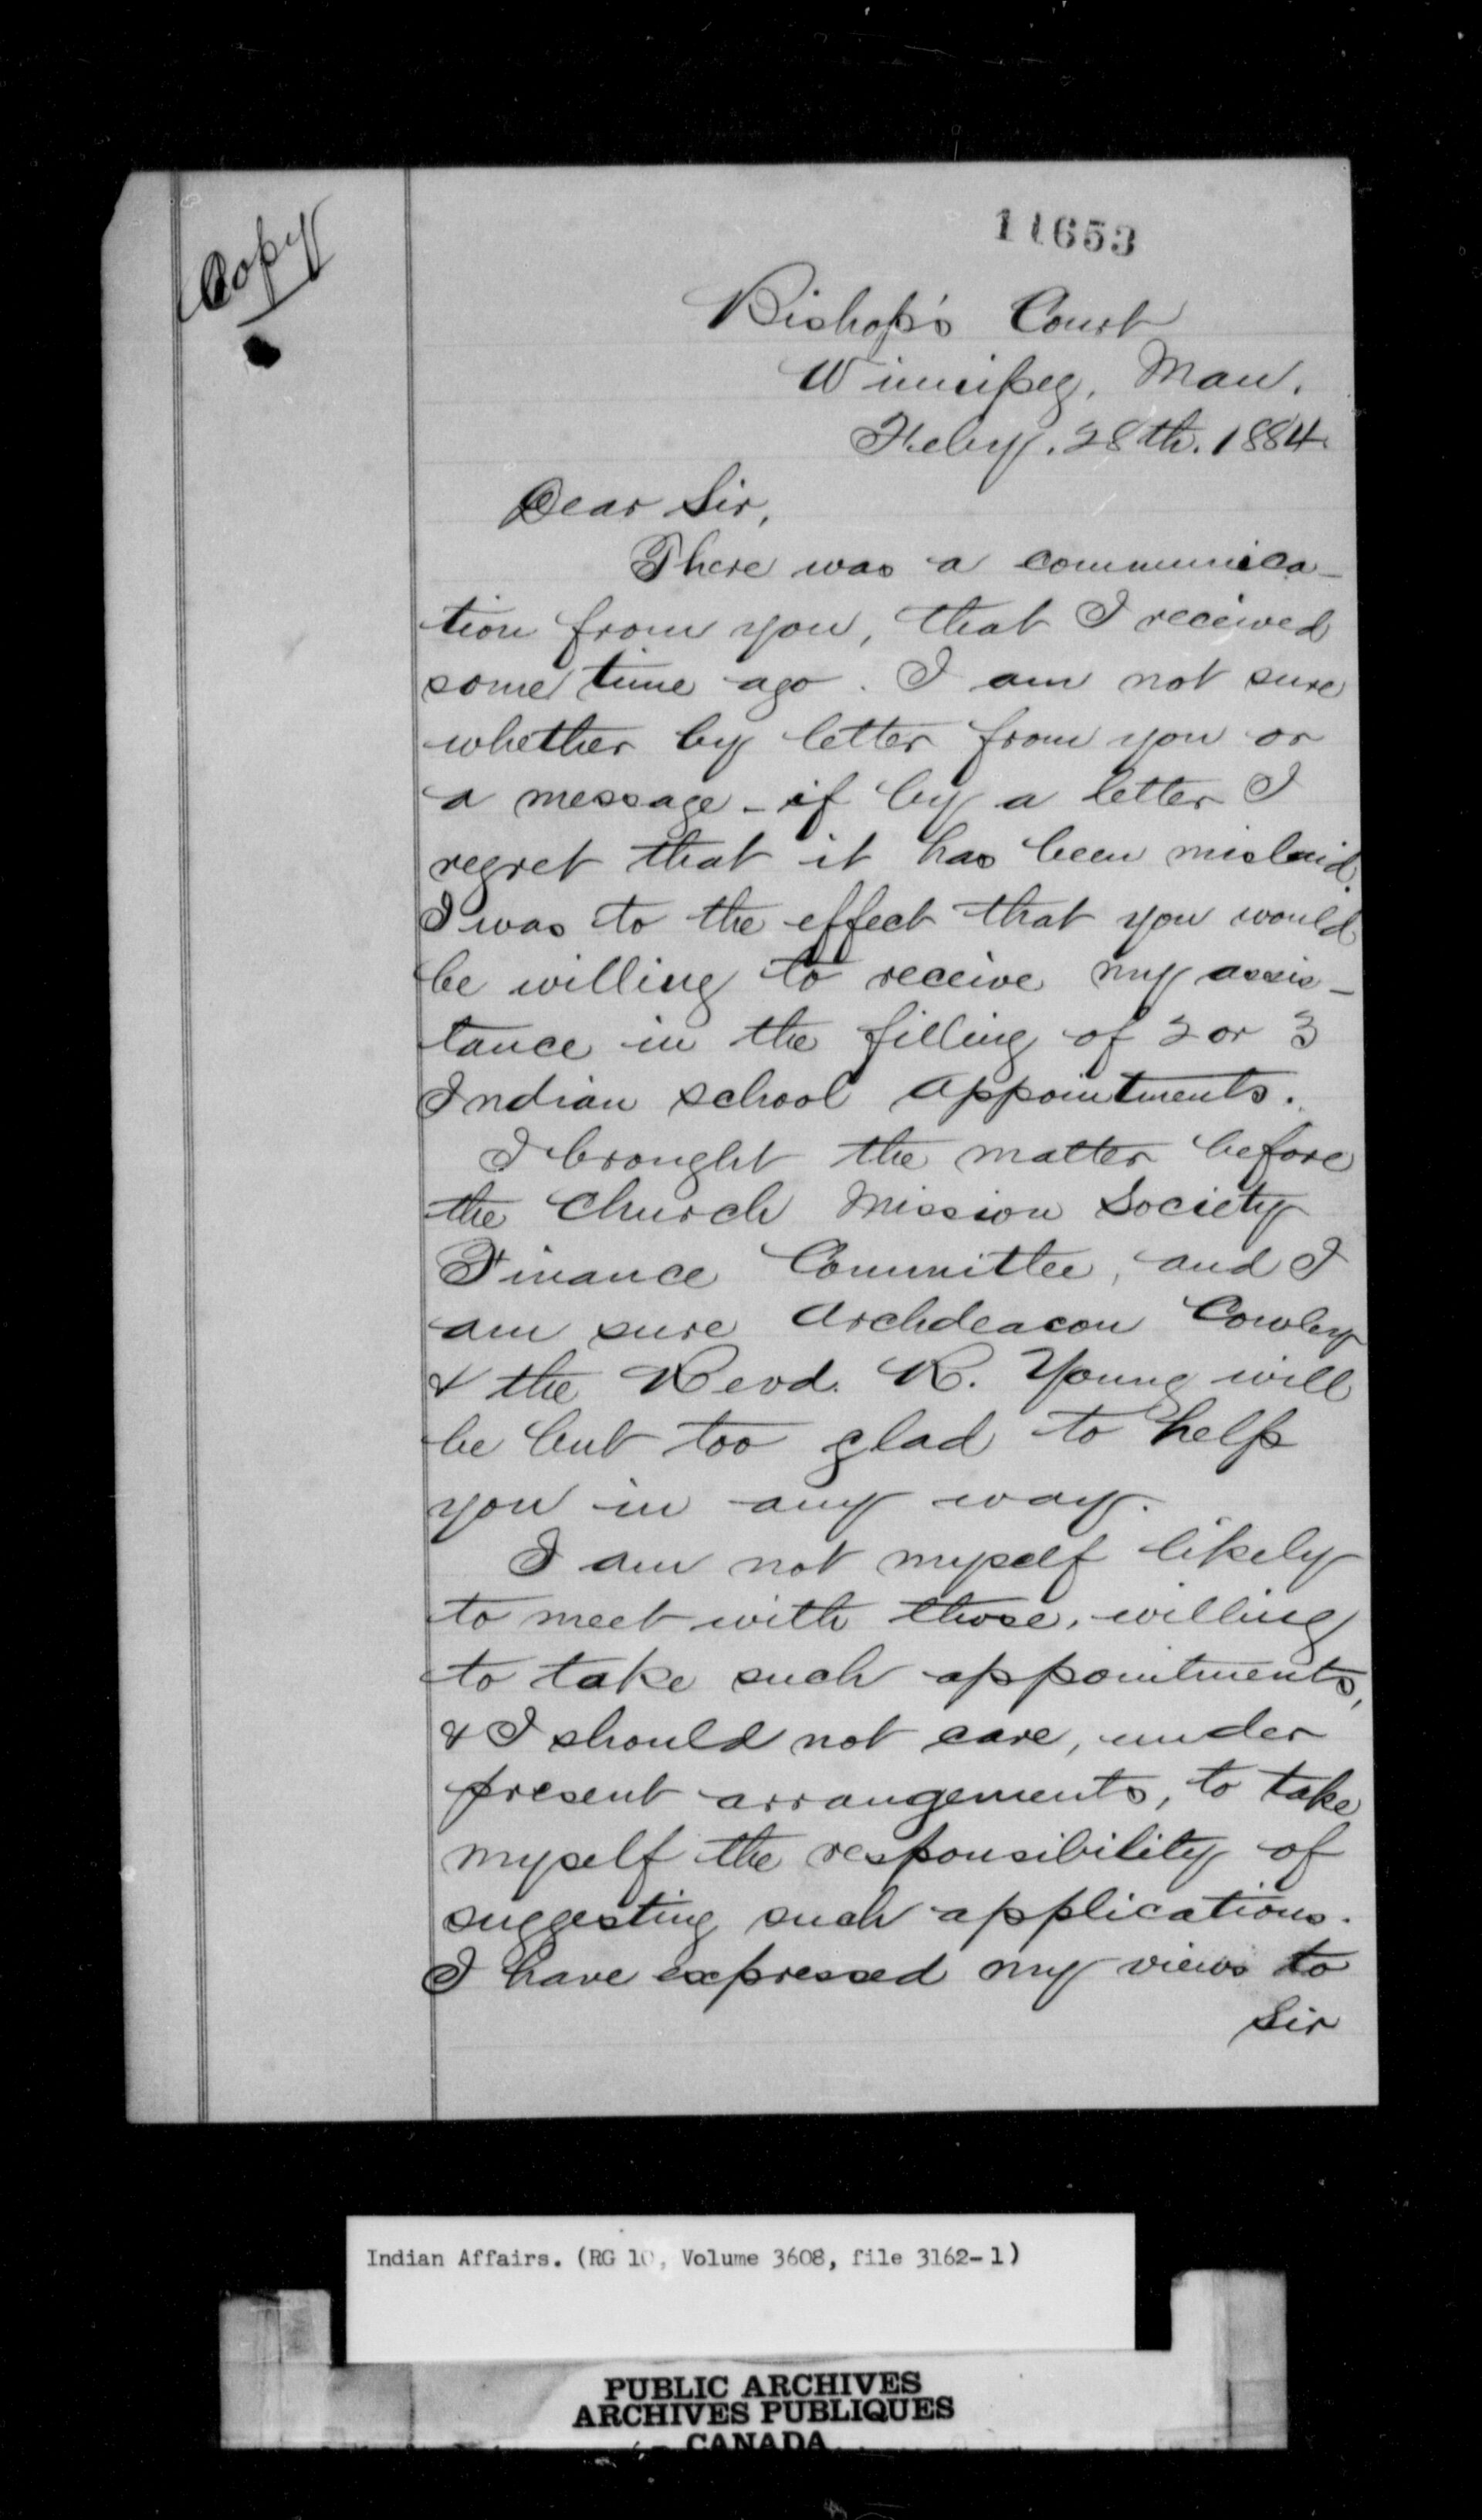 Copy
11653
Bishop's Court
Winnipeg, Man.
Feby. 28th. 1884.
Dear Sir,
There was a communica-
tion from you, that I received
some time ago. I am not sure
whether by letter from you or
a message - if by a letter I
regret that it has been mislaid.
I was to the effect that you would
be willing to receive my assis-
tance in the filling of 2 or 3
Indian school appointments.
I brought the matter before
the Church Mission Society
Finance Committee, and I
am sure Archdeacon Cowley
& the Revd. R. Young will
be but too glad to help
you in any way.
I am not myself likely
to meet with those, willing
to take such appointments,
& I should not care, under
present arrangements, to take
myself the responsibility of
suggesting such applications.
I have expressed my views to
Sir
Indian Affairs. (RG 10, Volume 3608, file 3162-1)
PUBLIC ARCHIVES
ARCHIVES PUBLIQUES
CANADA